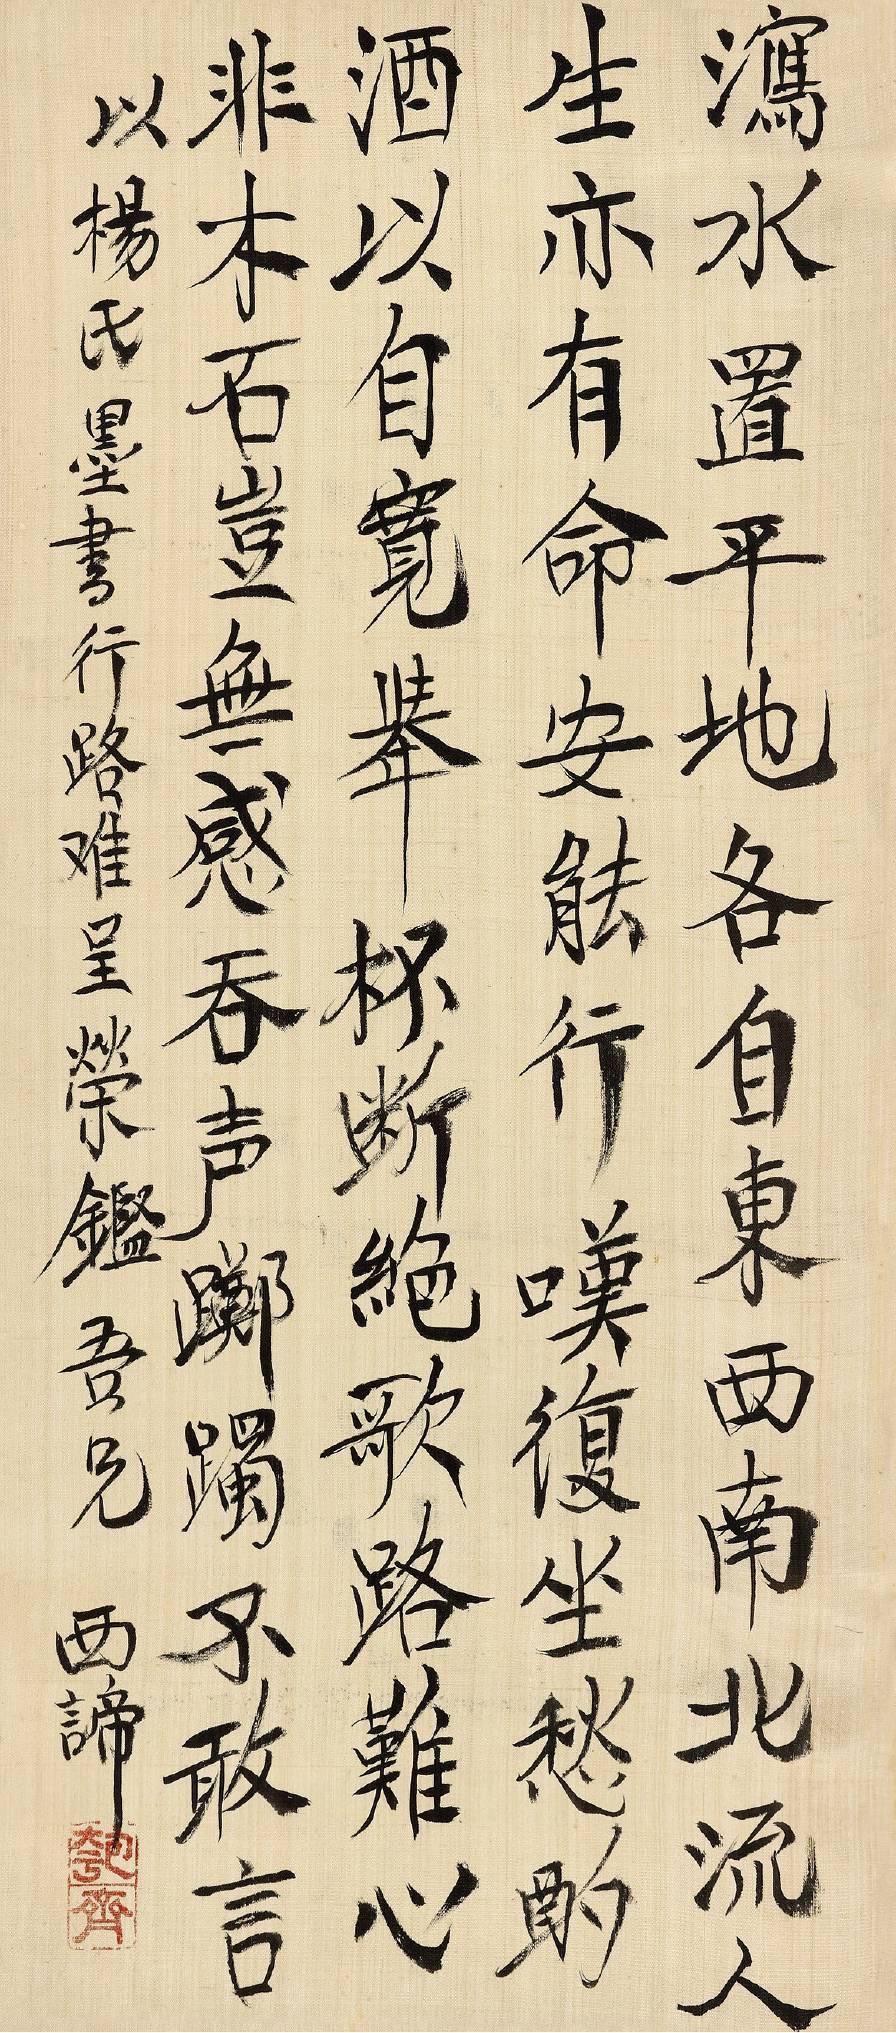 瀉水置平地各自東西南北流人
生亦有命安能行嘆復坐愁酌
酒以自寬舉杯斷絕歌路難心
非木石豈無感吞声躑躅不敢言
以楊氏墨書行路难呈榮鑑吾兄
西諦
匏齊